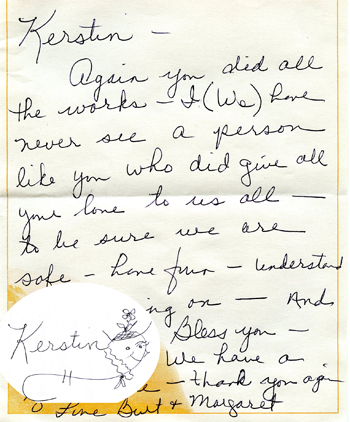 Kerstin –
Again you did all
the works – I (We) have
never see a person
like you who did give all
your love to us all –
to be sure we are
safe – have fun – understand
ing on – And
Kerstin
Bless you –
We have a
– thank you again
Love Burt & Margaret